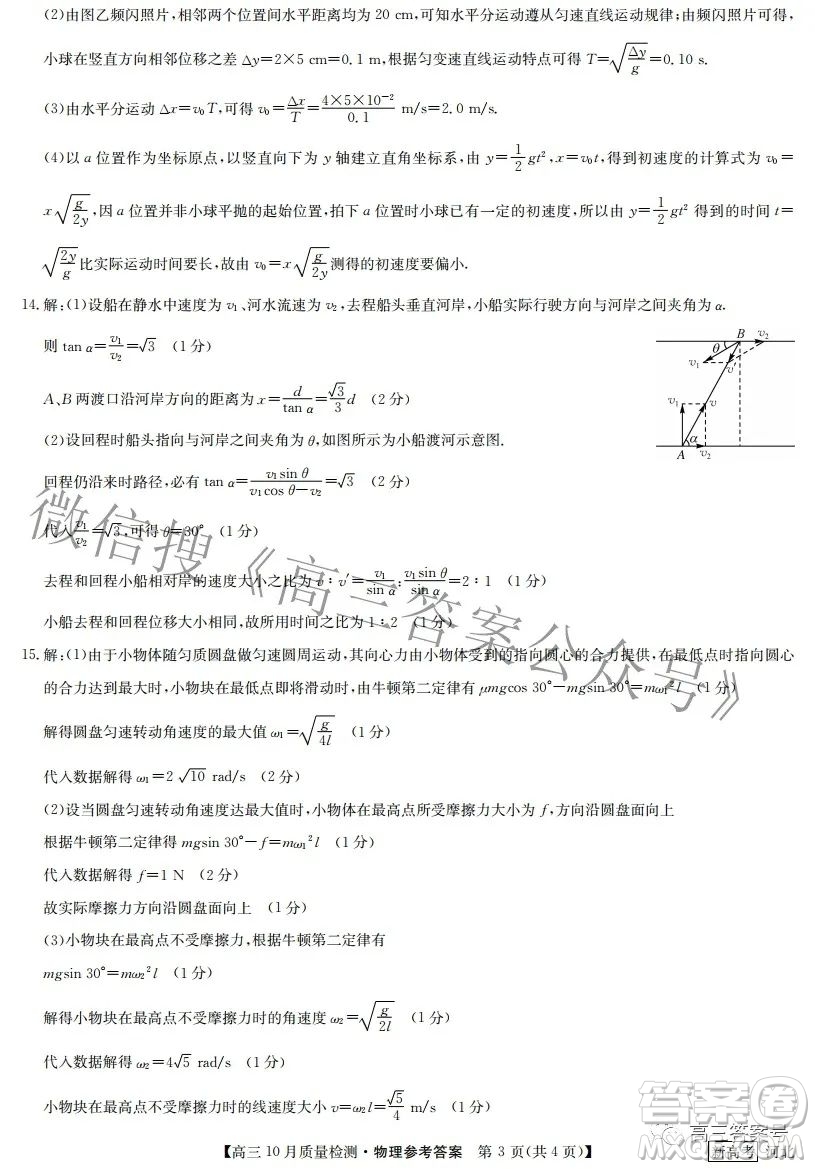 (2)由图乙频闪照片,相邻两个位置间水平距离均为 20 cm,可知水平分运动遵从匀速直线运动规律;由频闪照片可得,
小球在竖直方向相邻位移之差 Δy=2×5 cm=0.1 m,根据匀变速直线运动特点可得 T=√(Δy/g)=0.10 s.
(3)由水平分运动 Δx=v₀T,可得 v₀=Δx/T=(4×5×10⁻²)/0.1 m/s=2.0 m/s.
(4)以 a 位置作为坐标原点,以竖直向下为 y 轴建立直角坐标系,由 y=1/2 gt²,x=v₀t,得到初速度的计算式为 v₀=
x√(g/2y),因 a 位置并非小球平抛的起始位置,拍下 a 位置时小球已有一定的初速度,所以由 y=1/2 gt² 得到的时间 t=
√(2y/g)比实际运动时间要长,故由 v₀=x√(g/2y)测得的初速度要偏小.
14.解:(1)设船在静水中速度为 v₁、河水流速为 v₂,去程船头垂直河岸,小船实际行驶方向与河岸之间夹角为 α.
则 tan α=v₁/v₂=√3 (1 分)
A、B 两渡口沿河岸方向的距离为 x=d/tan α=√3/3 d (2 分)
(2)设回程时船头指向与河岸之间夹角为 θ,如图所示为小船渡河示意图.
回程仍沿来时路径,必有 tan α=v₁sin θ/(v₁cos θ−v₂)=√3 (2 分)
代入v₁/v₂=√3,可得 θ=30° (1 分)
去程和回程小船相对岸的速度大小之比为 v∶v′=v₁/sin α∶v₁sin θ/sin α=2∶1 (1 分)
小船去程和回程位移大小相同,故所用时间之比为 1∶2 (1 分)
B
θ
v₂
v₁
v′
v₁
v
α
A
v₂
15.解:(1)由于小物体随匀质圆盘做匀速圆周运动,其向心力由小物体受到的指向圆心的合力提供,在最低点时指向圆心
的合力达到最大时,小物块在最低点即将滑动时,由牛顿第二定律有 μmgcos 30°−mgsin 30°=mω₁²l (1 分)
解得圆盘匀速转动角速度的最大值 ω₁=√(g/4l) (1 分)
代入数据解得 ω₁=2√10 rad/s (2 分)
(2)设当圆盘匀速转动角速度达最大值时,小物体在最高点所受摩擦力大小为 f,方向沿圆盘面向上
根据牛顿第二定律得 mgsin 30°−f=mω₁²l (1 分)
代入数据解得 f=1 N (2 分)
故实际摩擦力方向沿圆盘面向上 (1 分)
(3)小物块在最高点不受摩擦力,根据牛顿第二定律有
mgsin 30°=mω₂²l (1 分)
解得小物块在最高点不受摩擦力时的角速度 ω₂=√(g/2l) (1 分)
代入数据解得 ω₂=4√5 rad/s (1 分)
小物块在最高点不受摩擦力时的线速度大小 v=ω₂l=√5/4 m/s (1 分)
微信搜《高三答案公众号》
【高三 10 月质量检测·物理参考答案 第 3 页(共 4 页)】
新高考 河北
答案圈
高三答案号
MXQE.COM